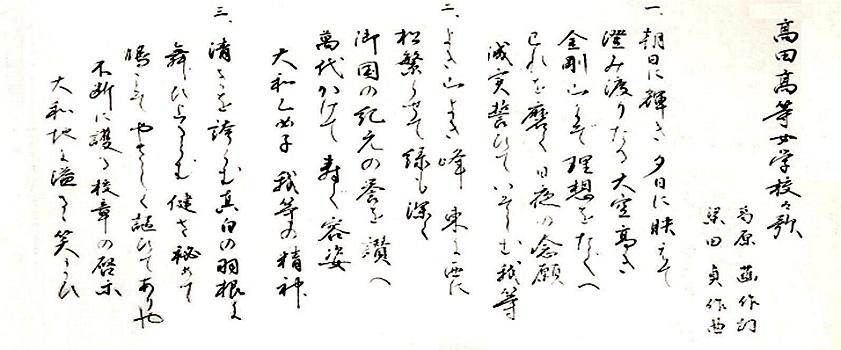 高田高等女学校々歌
葛原 𦱳作詞
梁田 貞作曲
一、朝日に輝き夕日に映えて
澄み渡りたる大空高き
金剛山もて理想をたぐへ
己れを磨く日夜の念願
誠実誓ひていそしむ我等
二、よき山よき峰 東に西に
松繁らせて緑も深く
御国の紀元の誉を讃へ
萬代かけて寿く容姿
大和乙女子 我等の精神
三、清さを誇らむ真白の羽根に
舞ひたらむ 健さ秘めて
鳴きて やさしく謳ひてありや
不断に護る校章の啓示
大和地に溢るゝ笑まひ